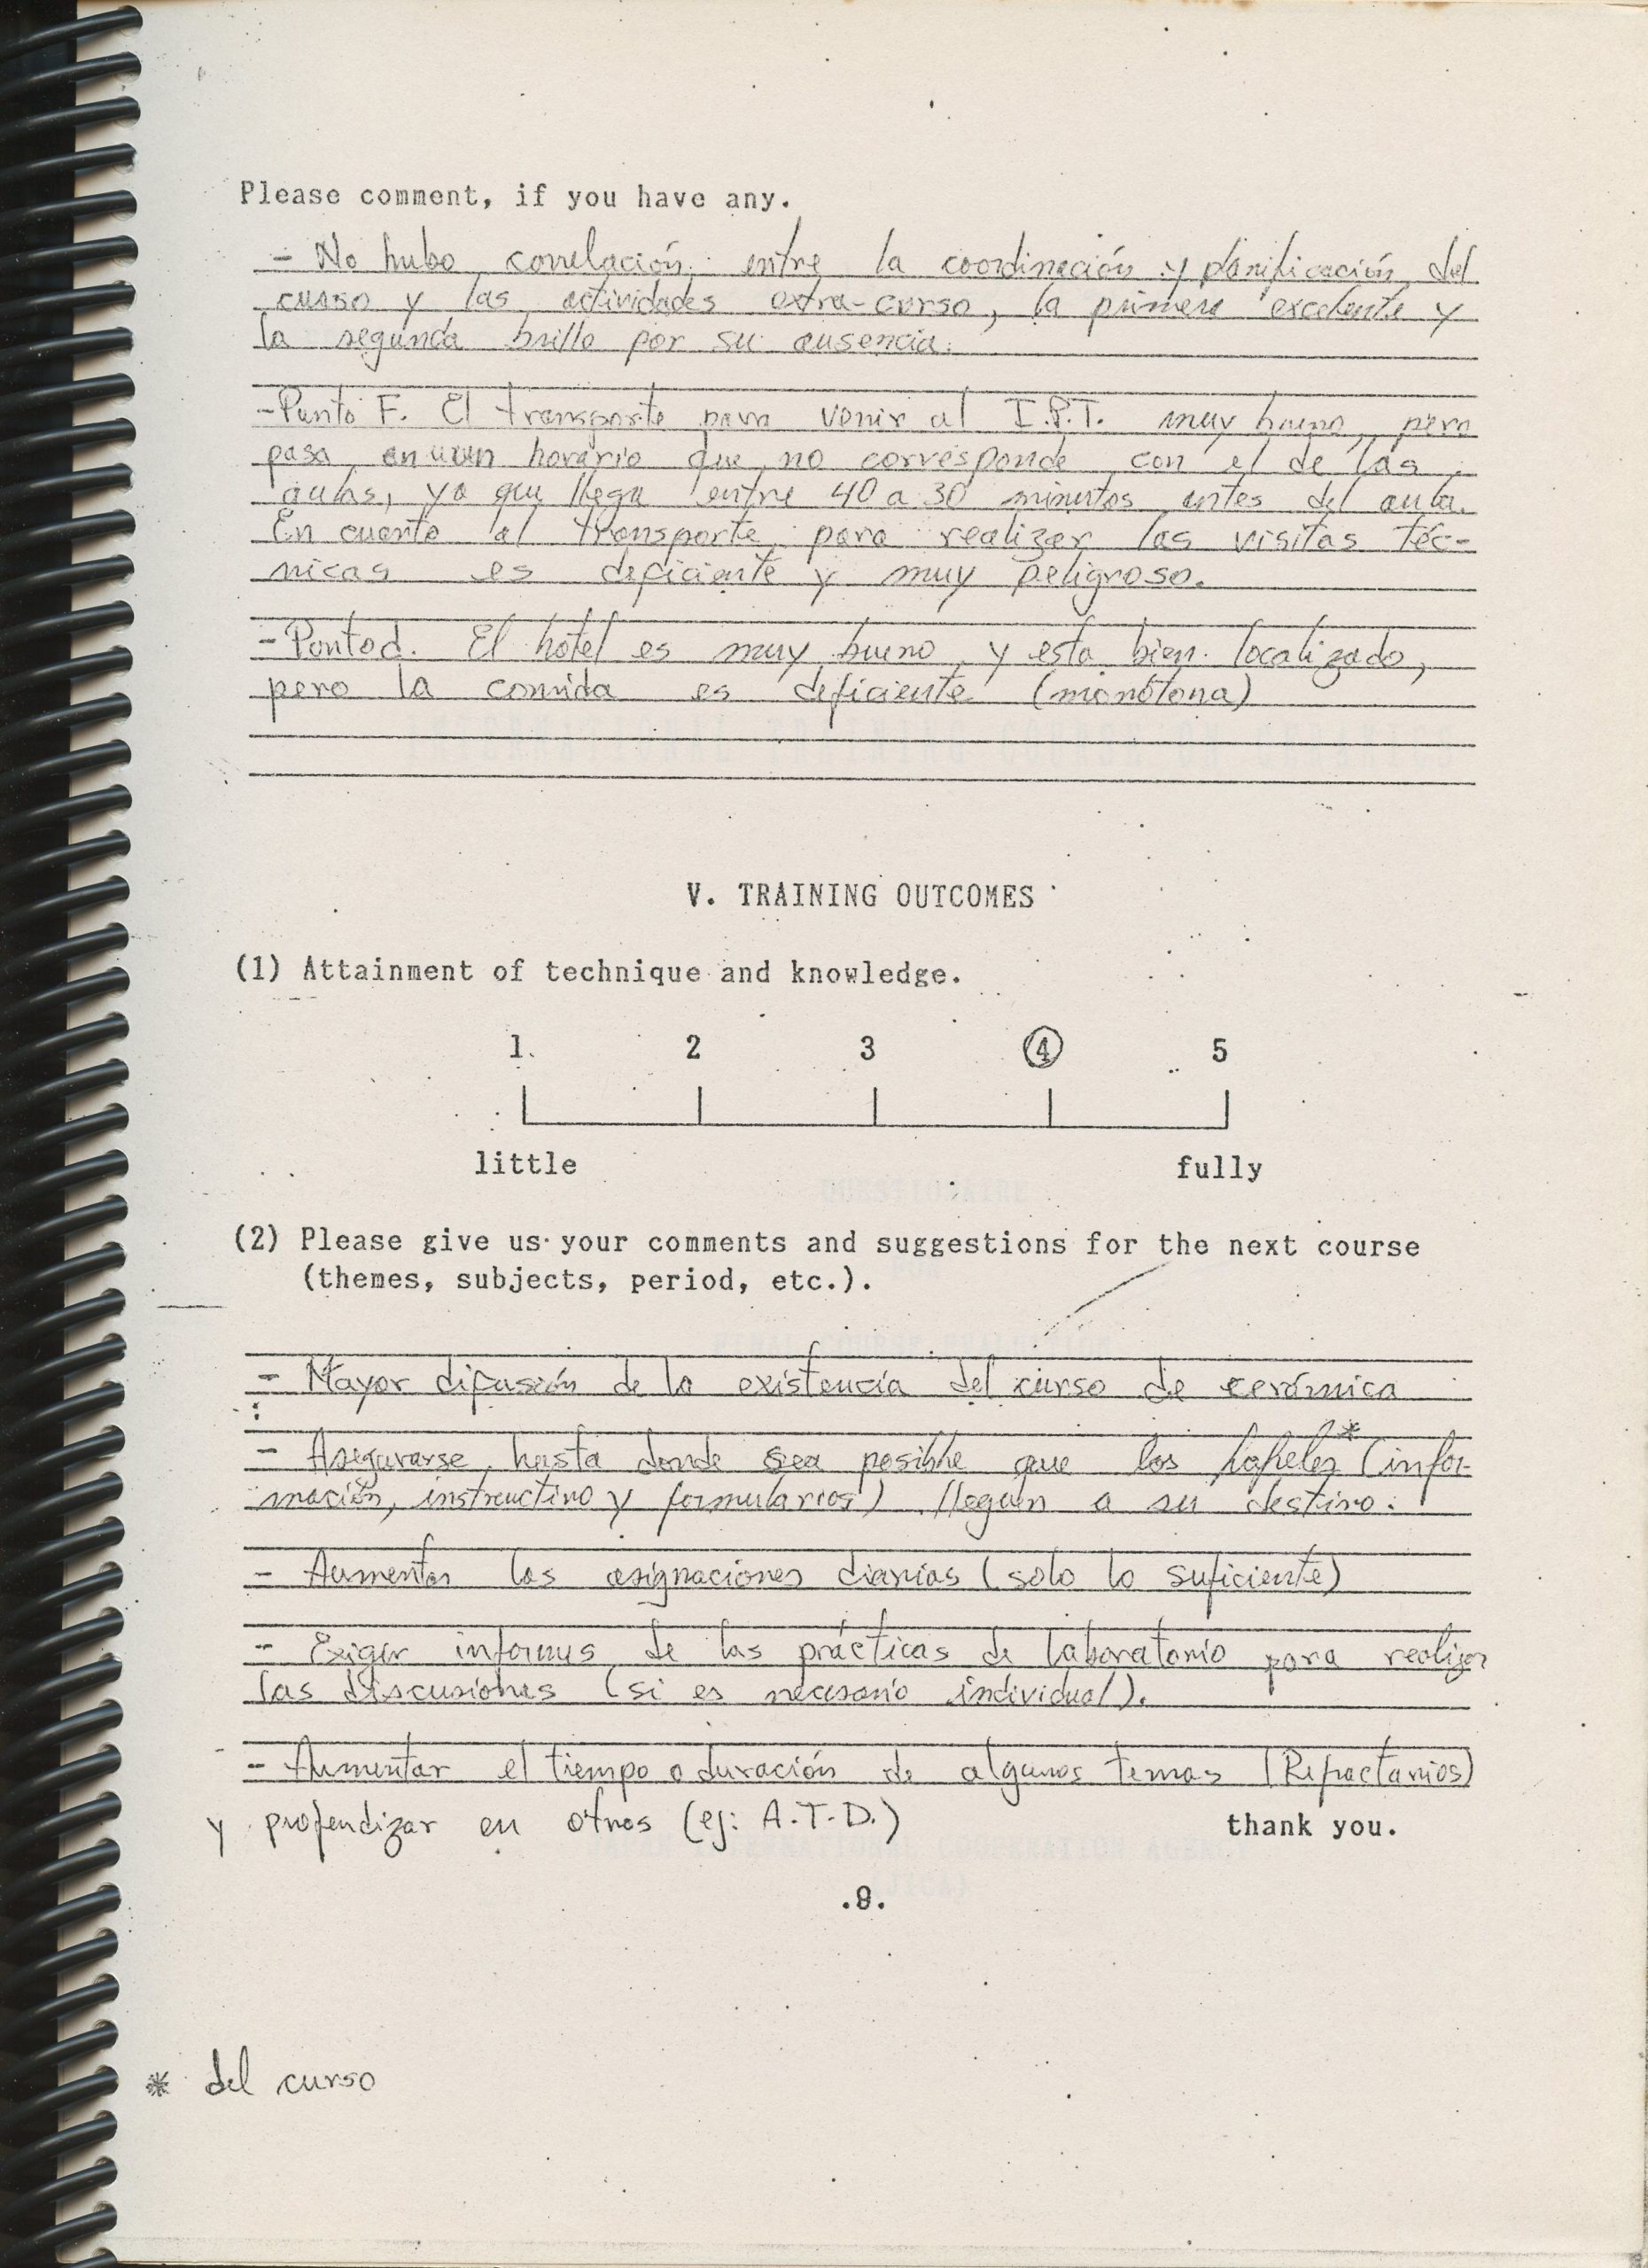 Please comment, if you have any.
- No hubo correlación entre la coordinación y planificación del
curso y las actividades extra-curso, la primera excelente y
la segunda brillo por su ausencia.
- Punto F. El transporte para venir al I.P.T. muy bueno, pero
pasa en un horario que no corresponde con el de las
aulas, ya que llega entre 40 a 30 minutos antes del aula.
En cuanto al transporte para realizar las visitas téc-
nicas es deficiente y muy peligroso.
- Punto d. El hotel es muy bueno y esta bien localizado,
pero la comida es deficiente (monótona)
V. TRAINING OUTCOMES
(1) Attainment of technique and knowledge.
1 2 3 4 5
little fully
(2) Please give us your comments and suggestions for the next course
(themes, subjects, period, etc.).
- Mayor difusión de la existencia del curso de cerámica
- Asegurarse hasta donde sea posible que los papeles * (infor-
mación, instructivo y formularios) lleguen a su destino.
- Aumentar las asignaciones diarias (solo lo suficiente)
- Exigir informes de las prácticas de laboratorio para realizar
las discusiones (si es necesario individual).
- Aumentar el tiempo o duración de algunos temas (Refractarios)
y profundizar en otros (ej: A.T.D.) thank you.
.9.
* del curso